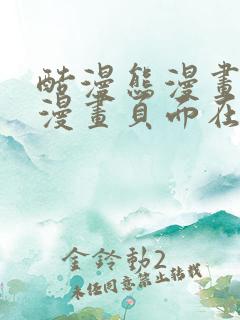 酷漫熊漫畫
漫畫頁面在
金鈴動2
未经同意禁止转载